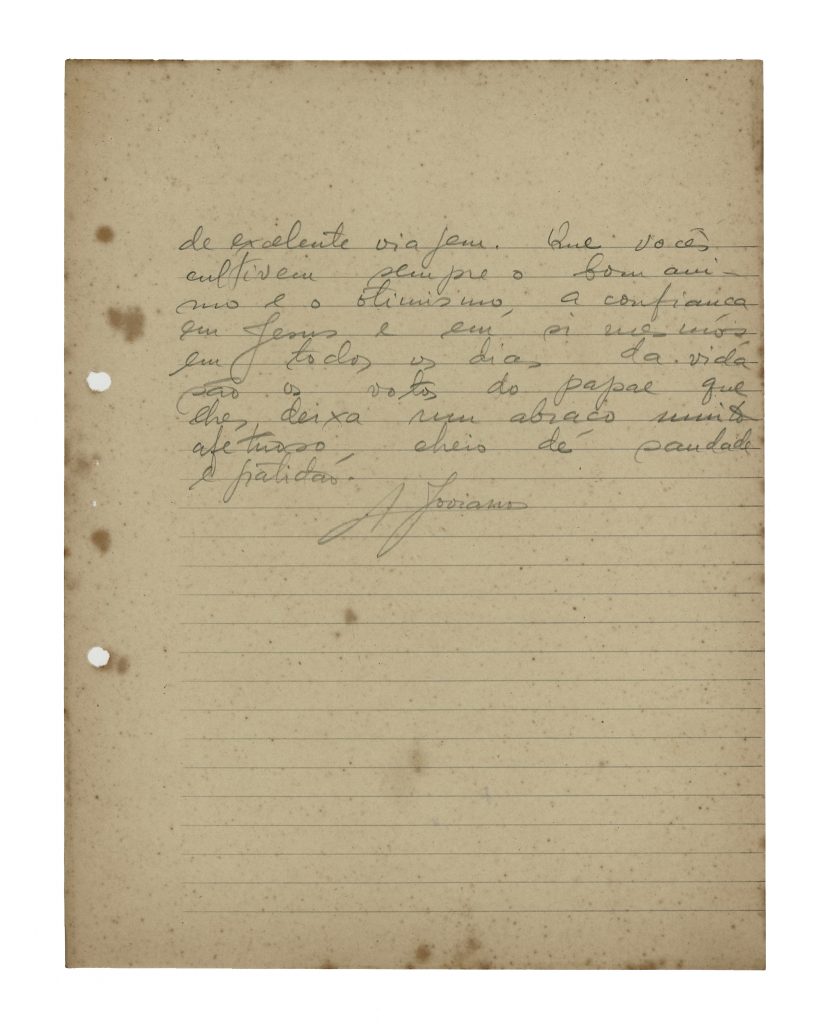 de excelente viagem. Que vocês
cultivem sempre o bom ani-
mo e o otimismo, a confiança
em Jesus e em si mesmos
em todos os dias da vida
são os votos do papae que
lhes deixa um abraço muito
afetuoso, cheio de saudade
e gratidão.
A Joviano